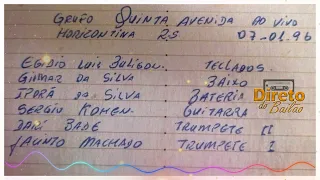 GRUPO QUINTA AVENIDA AO VIVO
HORIZONTINA RS 07-01-96
EGIDIO LUIZ BULIGON. TECLADOS.
GILMAR DA SILVA BAIXO
IPORÃ DA SILVA BATERIA
SERGIO KOHEN. GUITARRA
JARI BADE TRUMPETE II
JACINTO MACHADO TRUMPETE I
Direto do Bailão